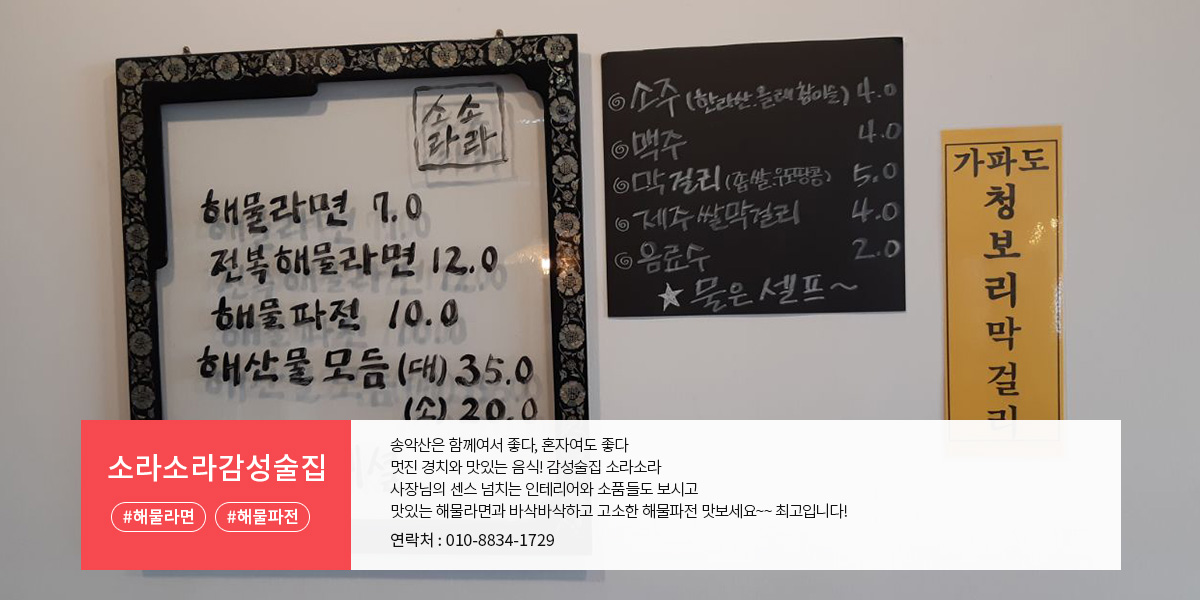 소소
라라
해물라면 7.0
전복해물라면 12.0
해물파전 10.0
해산물모듬 (대) 35.0
(소) 20.0
소주 (한라산.올래.참이슬) 4.0
맥주 4.0
막걸리 (좁쌀.우도땅콩) 5.0
제주쌀막걸리 4.0
음료수 2.0
★ 물은 셀프~
가파도
청보리막걸리
소라소라감성술집
#해물라면 #해물파전
송악산은 함께여서 좋다, 혼자여도 좋다
멋진 경치와 맛있는 음식! 감성술집 소라소라
사장님의 센스 넘치는 인테리어와 소품들도 보시고
맛있는 해물라면과 바삭바삭하고 고소한 해물파전 맛보세요~~ 최고입니다!
연락처 : 010-8834-1729